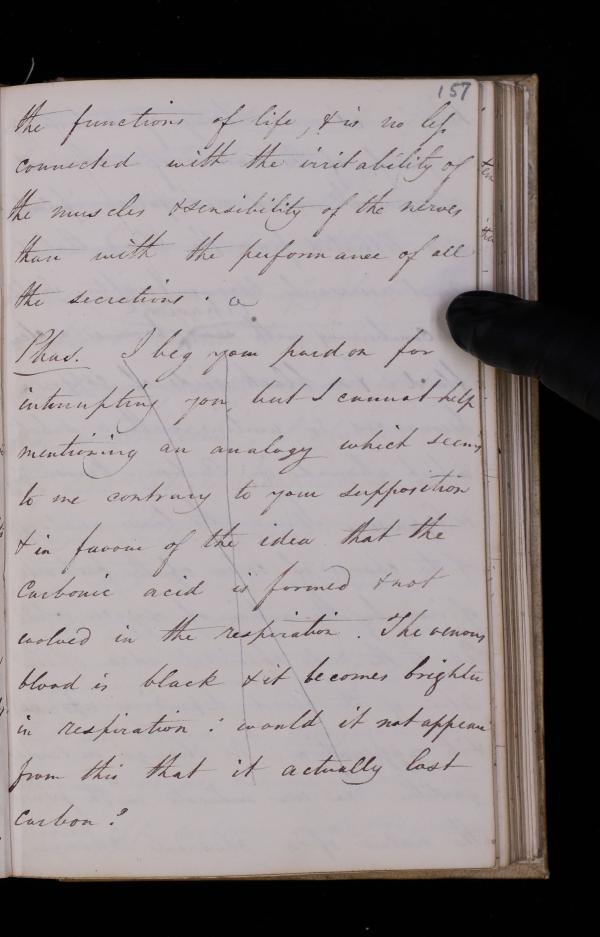 157
the functions of life, & is no less
connected with the irritability of
the muscles & sensibility of the nerves
than with the performance of all
the secretions. a
Phas. I beg your pardon for
interrupting you, but I cannot help
mentioning an analogy which seems
to me contrary to your supposition
& in favour of the idea that the
Carbonic acid is formed & not
evolved in the respiration. The venous
blood is black & it becomes brighter
in respiration: would it not appear
from this that it actually lost
Carbon?